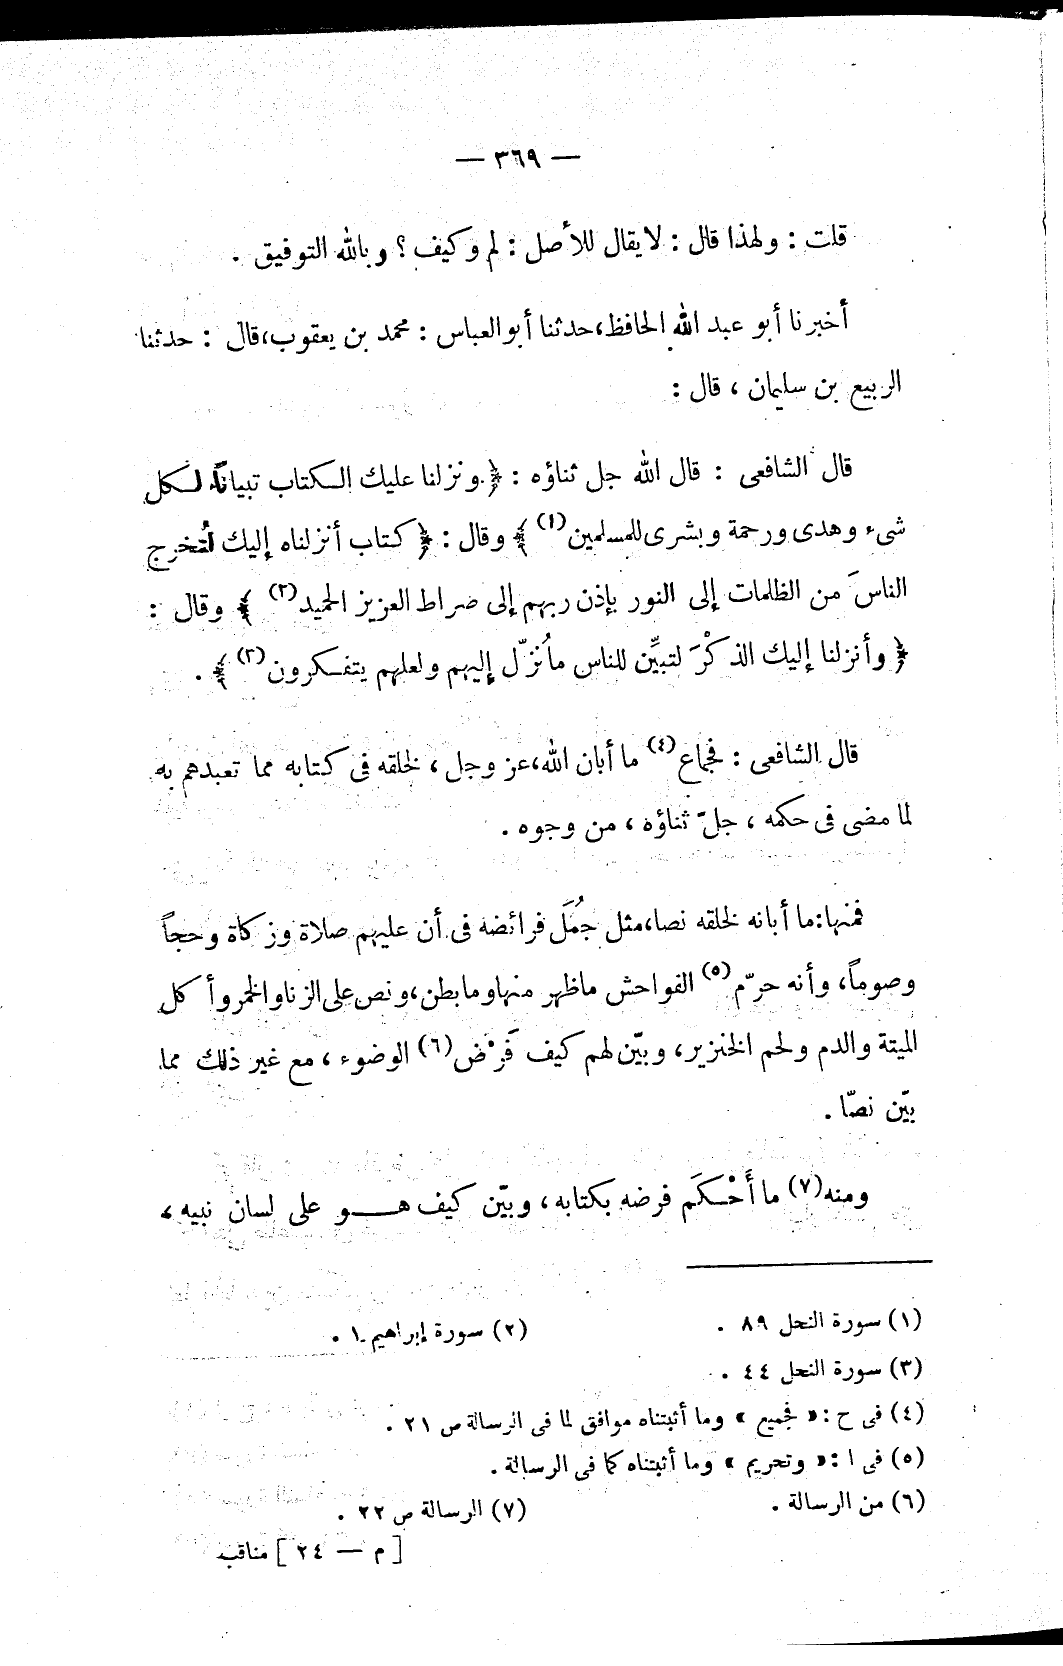 — ٣٦٩ —
قلت : ولهذا قال : لا يقال للأصل : لم وكيف ؟ وبالله التوفيق .
أخبرنا أبو عبد الله الحافظ، حدثنا أبو العباس : محمد بن يعقوب، قال : حدثنا
الربيع بن سليمان ، قال :
قال الشافعى : قال الله جل ثناؤه : ﴿ ونزلنا عليك الكتاب تبياناً لكل
شىء وهدى ورحمة وبشرى للمسلمين(١) ﴾ وقال : ﴿ كتاب أنزلناه إليك لتُخرج
الناسَ من الظلمات إلى النور بإذن ربهم إلى صراط العزيز الحميد(٢) ﴾ وقال :
﴿ وأنزلنا إليك الذكْرَ لتبيِّن للناس ما نُزّل إليهم ولعلهم يتفكرون(٣) ﴾ .
قال الشافعى : فجماع(٤) ما أبان الله، عز وجل ، لخلقه فى كتابه مما تعبدهم به
لما مضى فى حكمه ، جلّ ثناؤه ، من وجوه .
فمنها: ما أبانه لخلقه نصا، مثل جُمَل فرائضه فى أن عليهم صلاة وزكاة وحجاً
وصوماً، وأنه حرّم(٥) الفواحش ما ظهر منها وما بطن، ونص على الزنا والخمر وأكل
الميتة والدم ولحم الخنزير، وبيّن لهم كيف فَرْض(٦) الوضوء ، مع غير ذلك مما
بيّن نصّا .
ومنه(٧) ما أَحْكَم فرضه بكتابه ، وبيّن كيف هو على لسان نبيه ،
(١) سورة النحل ٨٩ . (٢) سورة إبراهيم ١ .
(٣) سورة النحل ٤٤ .
(٤) فى ح : « فجميع » وما أثبتناه موافق لما فى الرسالة ص ٢١ .
(٥) فى ا : « وتحريم » وما أثبتناه كما فى الرسالة .
(٦) من الرسالة . (٧) الرسالة ص ٢٢ .
[ م — ٢٤ ] مناقب